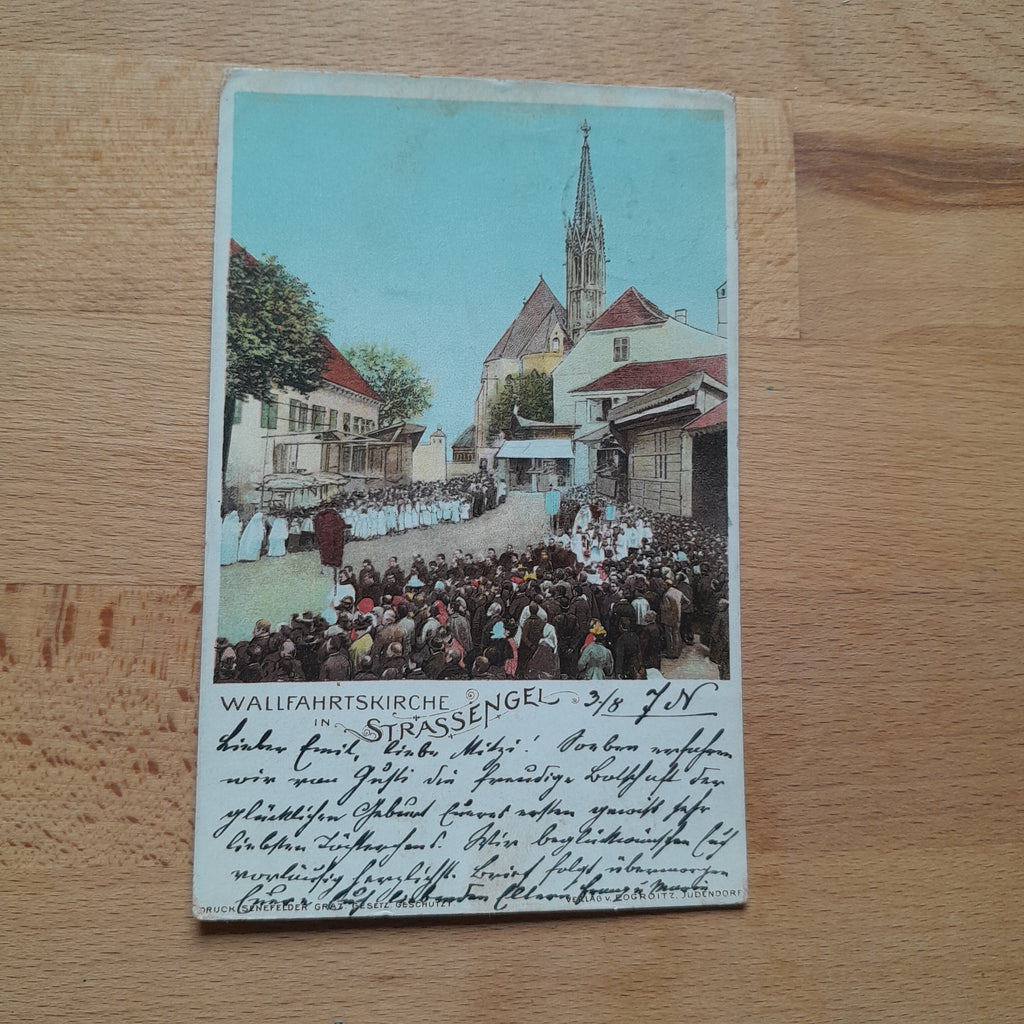 WALLFAHRTSKIRCHE
IN STRASSENGEL
3/8 7 N
Lieber Emil, liebe Mitzi! Soeben erfahren
wir von Gusti die freudige Botschaft der
glücklichen Geburt Eueres ersten gewiß sehr
liebsten Töchterchens. Wir beglückwünschen Euch
vorläufig herzlichst. Brief folgt übermorgen
Euere Euch liebenden Eltern Franz u. Marie
DRUCK SENEFELDER GRAZ. GESETZ. GESCHÜTZT.
VERLAG v. POGROITZ. JUDENDORF